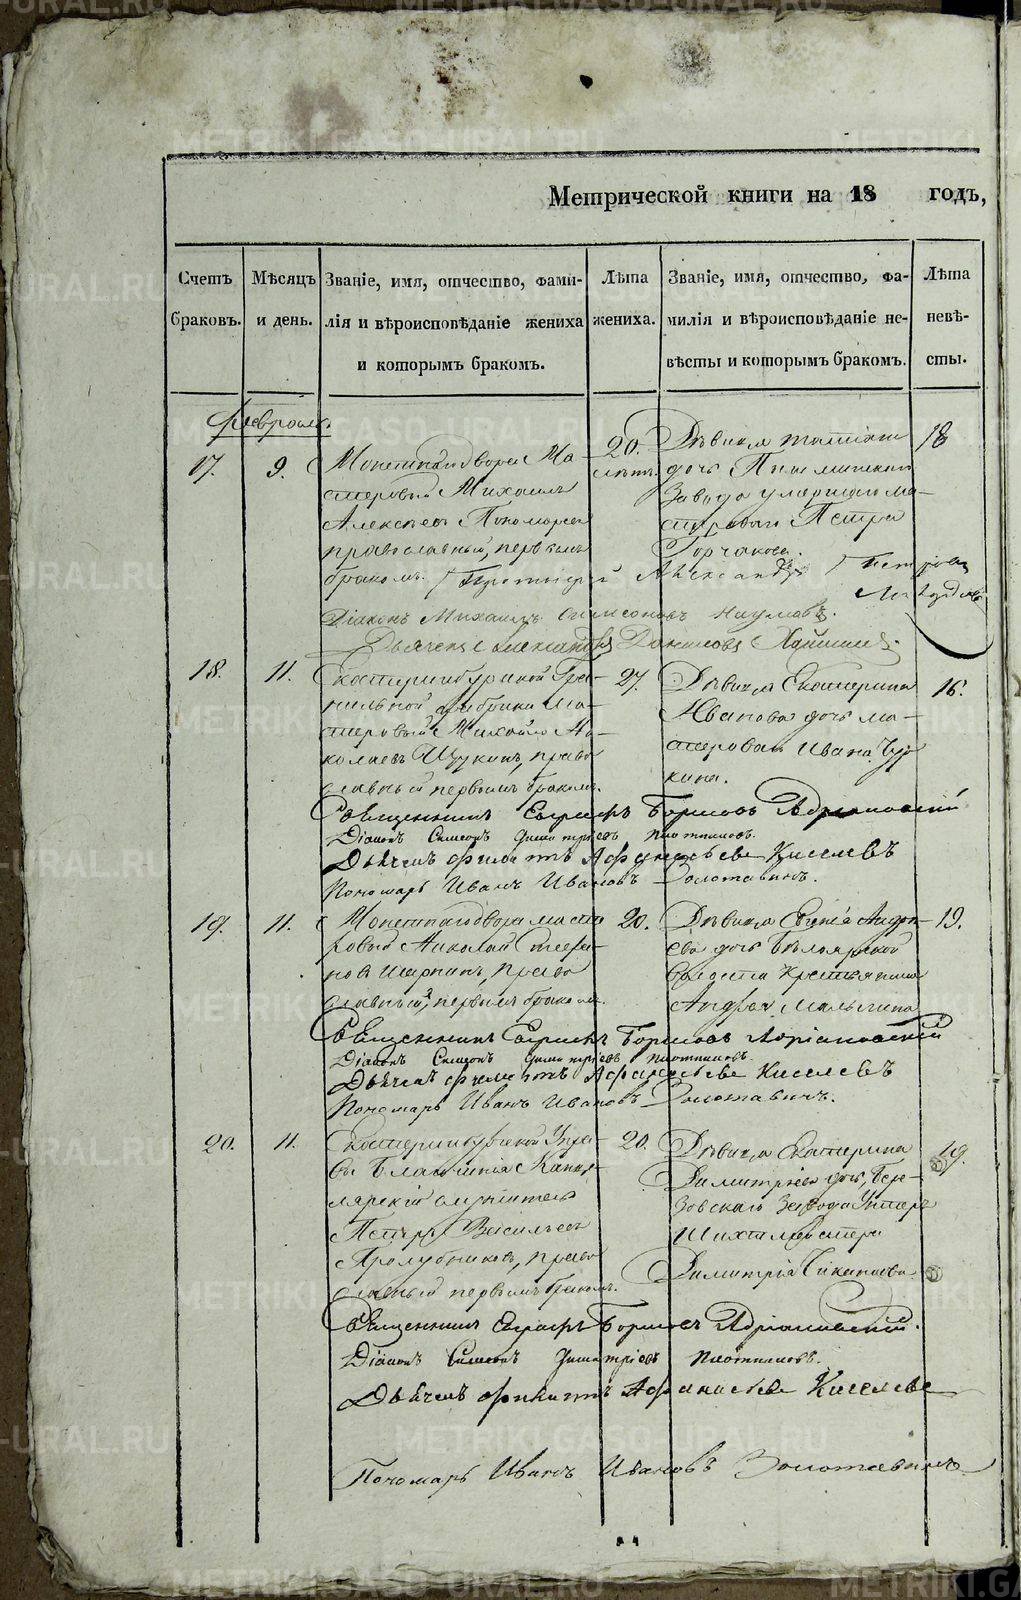 Метрической книги на 18 годъ,
Счетъ браковъ.
Мѣсяцъ и день.
Званіе, имя, отчество, фами-
лія и вѣроисповѣданіе жениха
и которымъ бракомъ.
Лѣта жениха.
Званіе, имя, отчество, фа-
милія и вѣроисповѣданіе не-
вѣсты и которымъ бракомъ.
Лѣта невѣ-
сты.
Февраль
17. 9.
Монетнаго двора Ма-
стеровый Михаилъ
Алексѣевъ Пономаревъ
православный, первымъ
бракомъ.
20. лѣтъ.
Дѣвица
дочь Пышминскаго
Завода умершаго ма-
стероваго Петра
Горчакова.
18
Протоіерей Александръ Петровъ
Діаконъ Михаилъ Симеоновъ Наумовъ.
Дьячекъ Александръ Даниловъ
18. 11.
Екатеринбургской Гра-
нильной фабрики Ма-
стеровый Михайло Ни-
колаевъ Щукинъ, право
славный первымъ бракомъ.
27.
Дѣвица Екатерина
Иванова дочь ма-
стероваго Ивана Чур
кина.
16.
Священникъ Евграфъ Борисовъ Адріановскій
Діаконъ Симеонъ Димитріевъ Плотниковъ.
Дьячекъ Филиппъ Афанасьевъ Киселевъ
Пономарь Иванъ Ивановъ Золотавинъ.
19. 11.
Монетнаго двора масте
ровый Николай Стефа-
новъ Шарпинъ, право
славный, первымъ бракомъ.
20.
Дѣвица Евгенія Андре-
ева дочь Бѣлоярской
волости Крестьянина
Андрея Малыгина
19.
Священникъ Евграфъ Борисовъ Адріановскій
Діаконъ Симеонъ Димитріевъ Плотниковъ.
Дьячекъ Филиппъ Афанасьевъ Киселевъ
Пономарь Иванъ Ивановъ Золотавинъ.
20. 11.
Екатеринбургской Упра-
вы Благочинія Канце-
лярскій служитель
Петръ Васильевъ
Пролубниковъ, право
славный первымъ бракомъ.
20.
Дѣвица Екатерина
Димитріева дочь, Бере-
зовскаго Завода Унтеръ
Шихтмейстера
Димитрія
19.
Священникъ Евграфъ Борисовъ Адріановскій.
Діаконъ Симеонъ Димитріевъ Плотниковъ.
Дьячекъ Филиппъ Афанасьевъ Киселевъ
Пономарь Иванъ Ивановъ Золотавинъ
METRIKI.GASO-URAL.RU